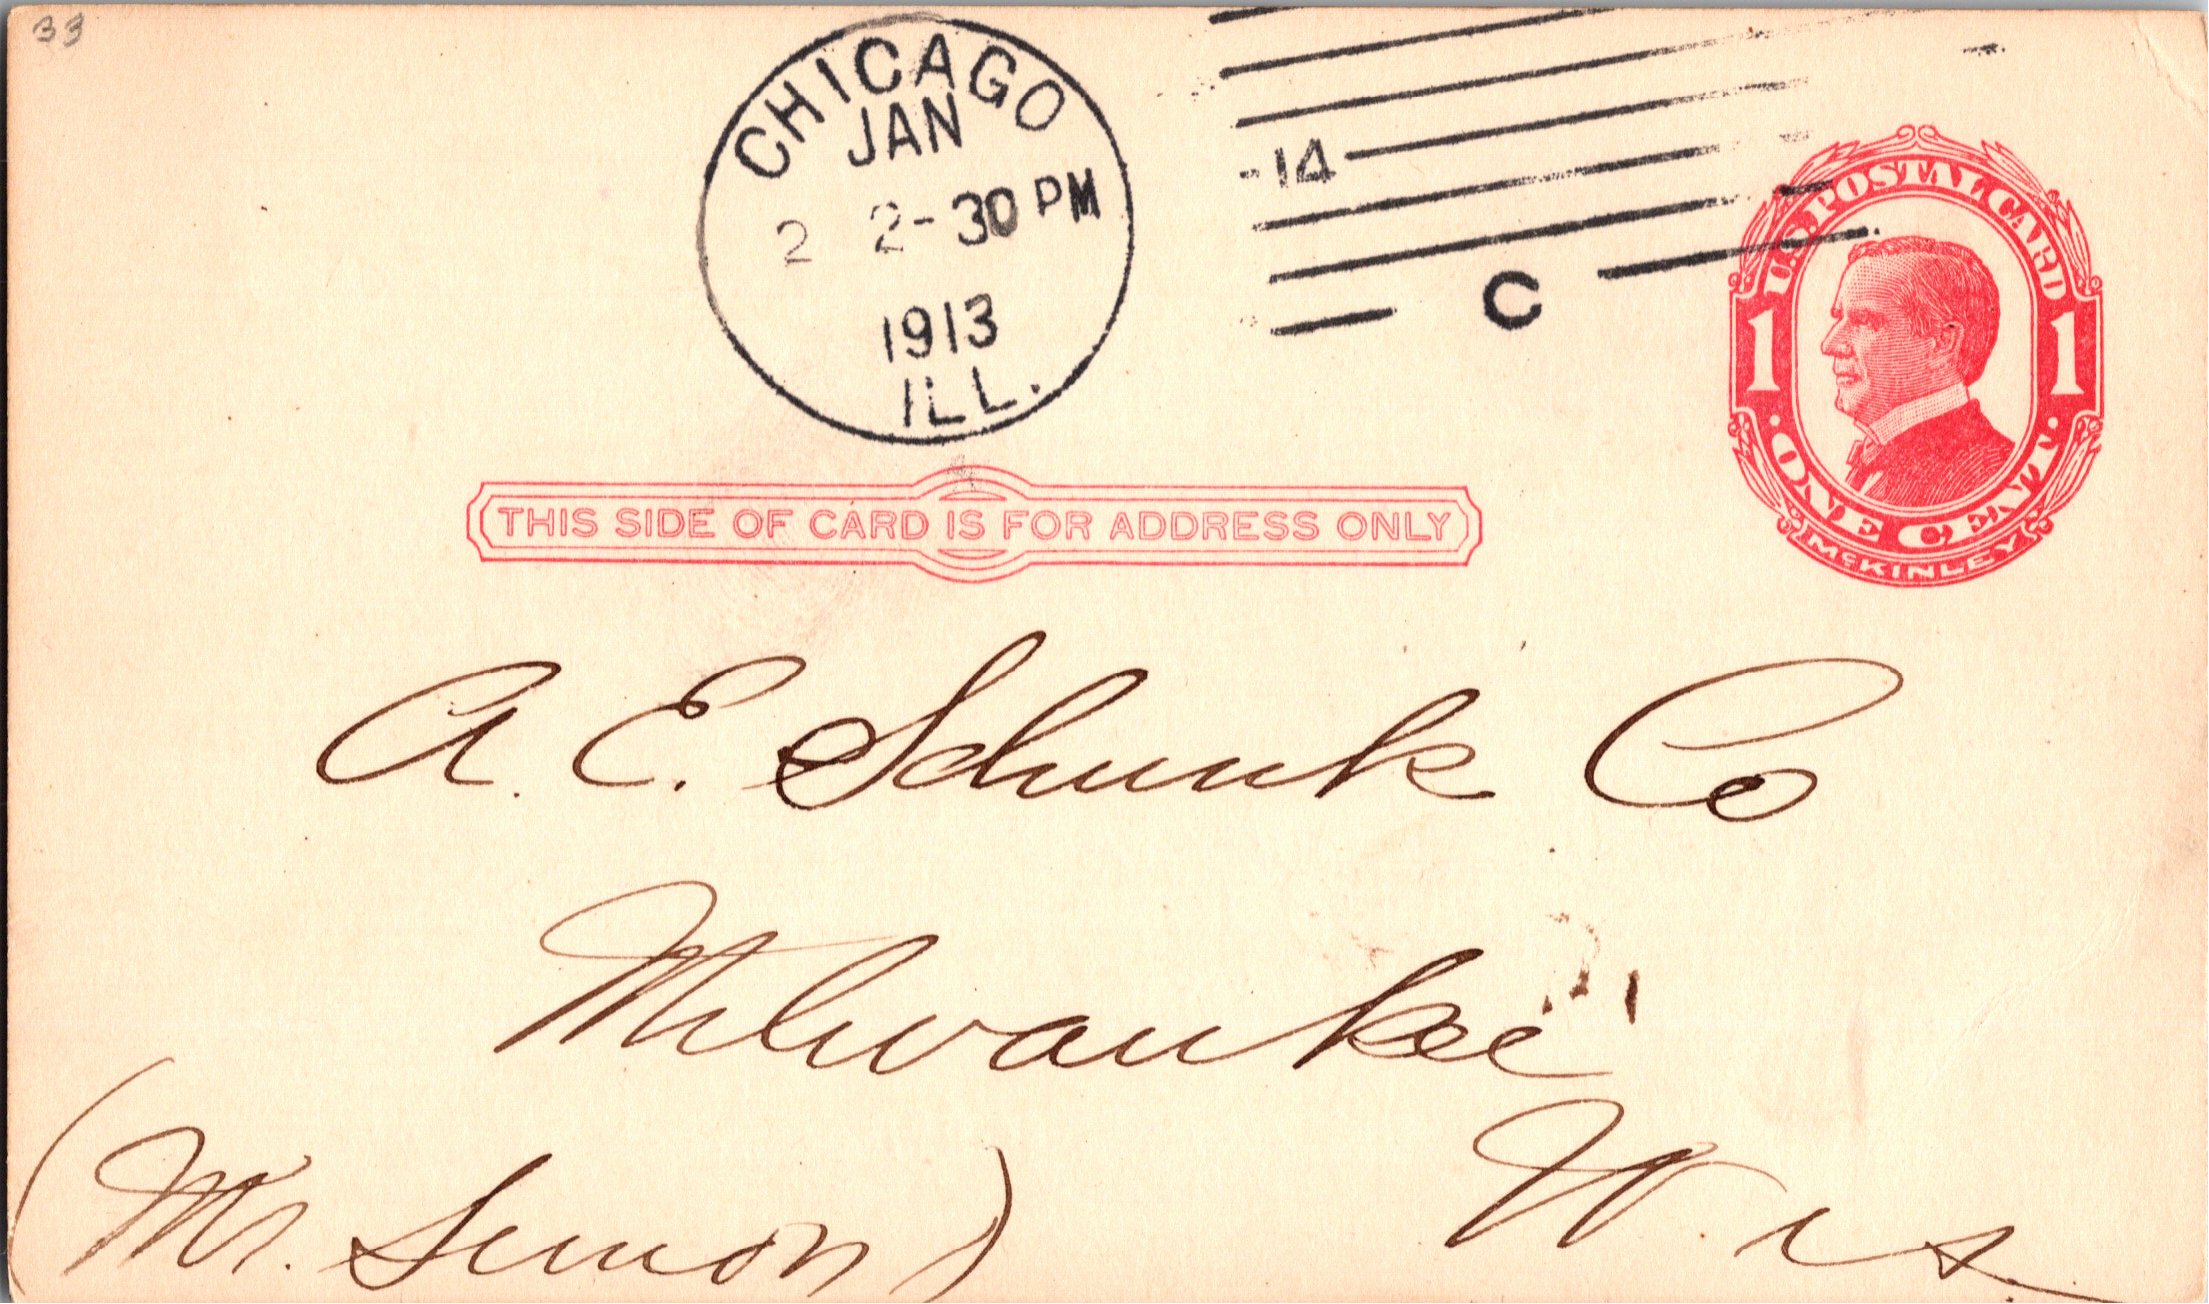 33
CHICAGO
JAN
2 2-30 PM
1913
ILL.
14
C
U.S. POSTAL CARD
1 1
· ONE CENT ·
McKINLEY
THIS SIDE OF CARD IS FOR ADDRESS ONLY
A. E. Schunk Co
Milwaukee
Wis.
(Mr. Simon)